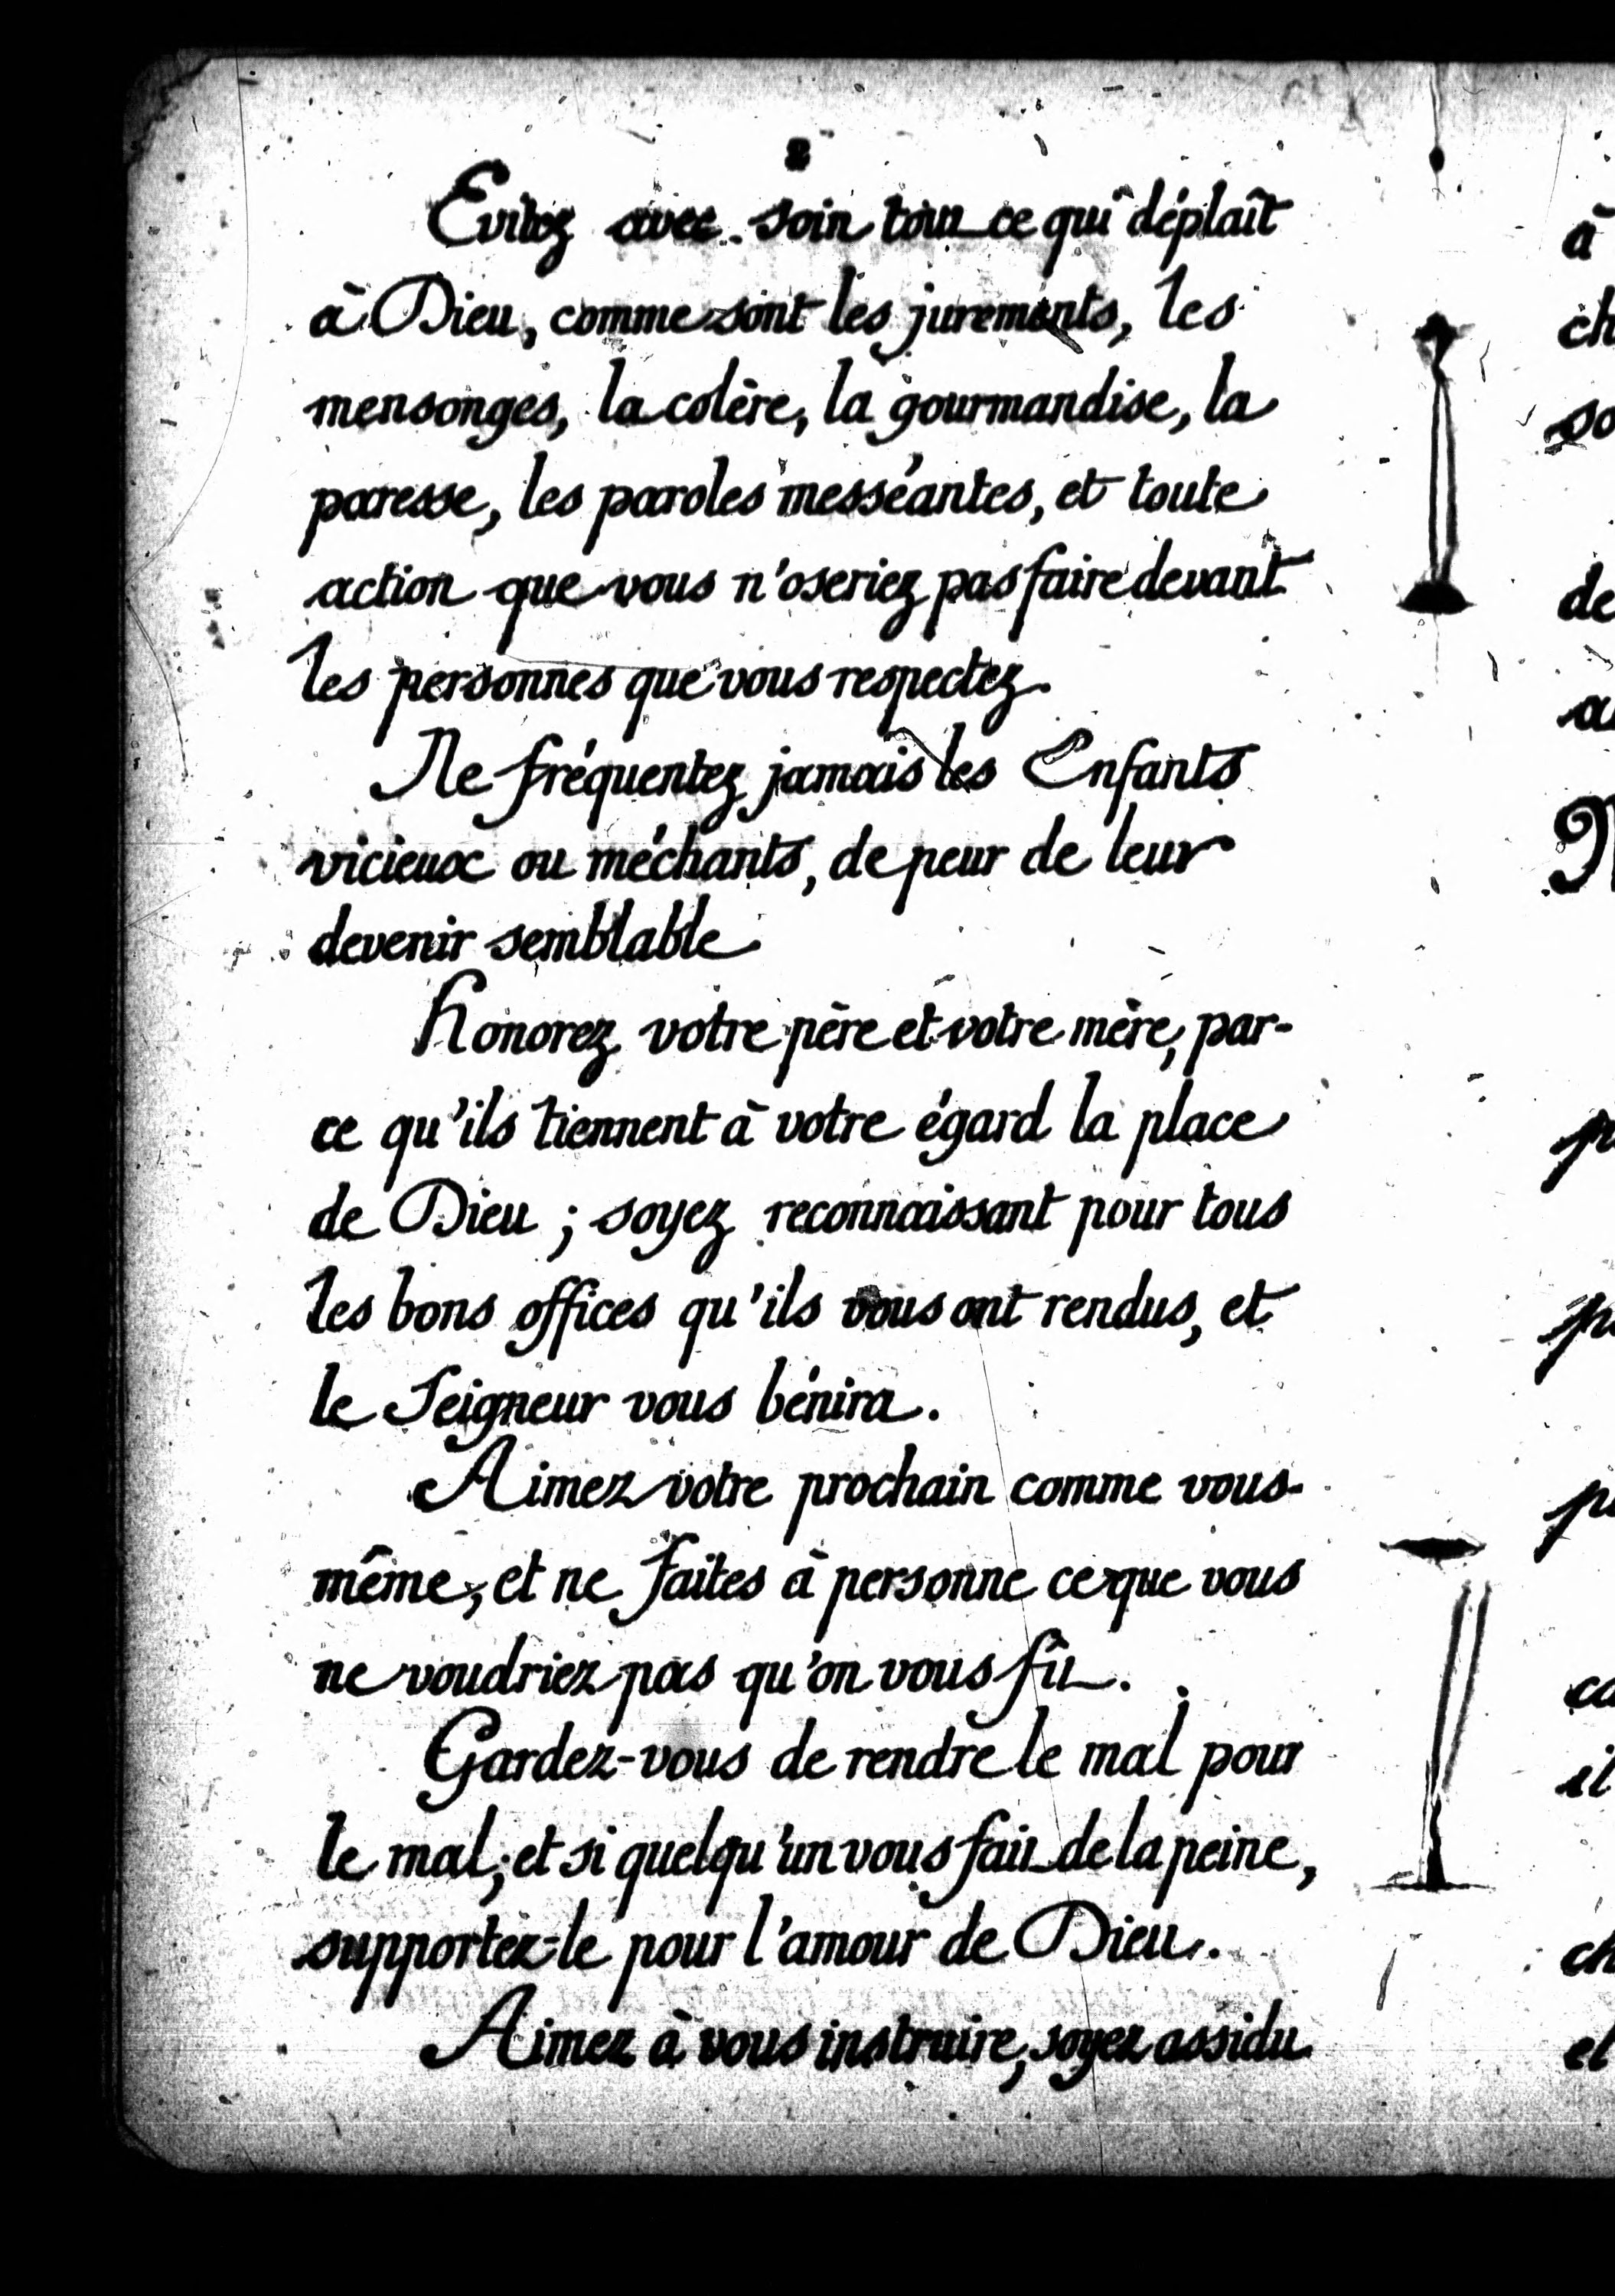 8
Evitez avec soin tout ce qui déplaît
à Dieu, comme sont les jurements, les
mensonges, la colère, la gourmandise, la
paresse, les paroles messéantes, et toute
action que vous n'oseriez pas faire devant
les personnes que vous respectez.
Ne fréquentez jamais les Enfants
vicieux ou méchants, de peur de leur
devenir semblable
Honorez votre père et votre mère, par-
ce qu'ils tiennent à votre égard la place
de Dieu ; soyez reconnaissant pour tous
les bons offices qu'ils vous ont rendus, et
le Seigneur vous bénira.
Aimez votre prochain comme vous-
même, et ne faites à personne ce que vous
ne voudriez pas qu'on vous fît.
Gardez-vous de rendre le mal pour
le mal; et si quelqu'un vous fait de la peine,
supportez-le pour l'amour de Dieu.
Aimez à vous instruire, soyez assidu
à
ch
so
de
a
p
p
p
ca
il
ch
et